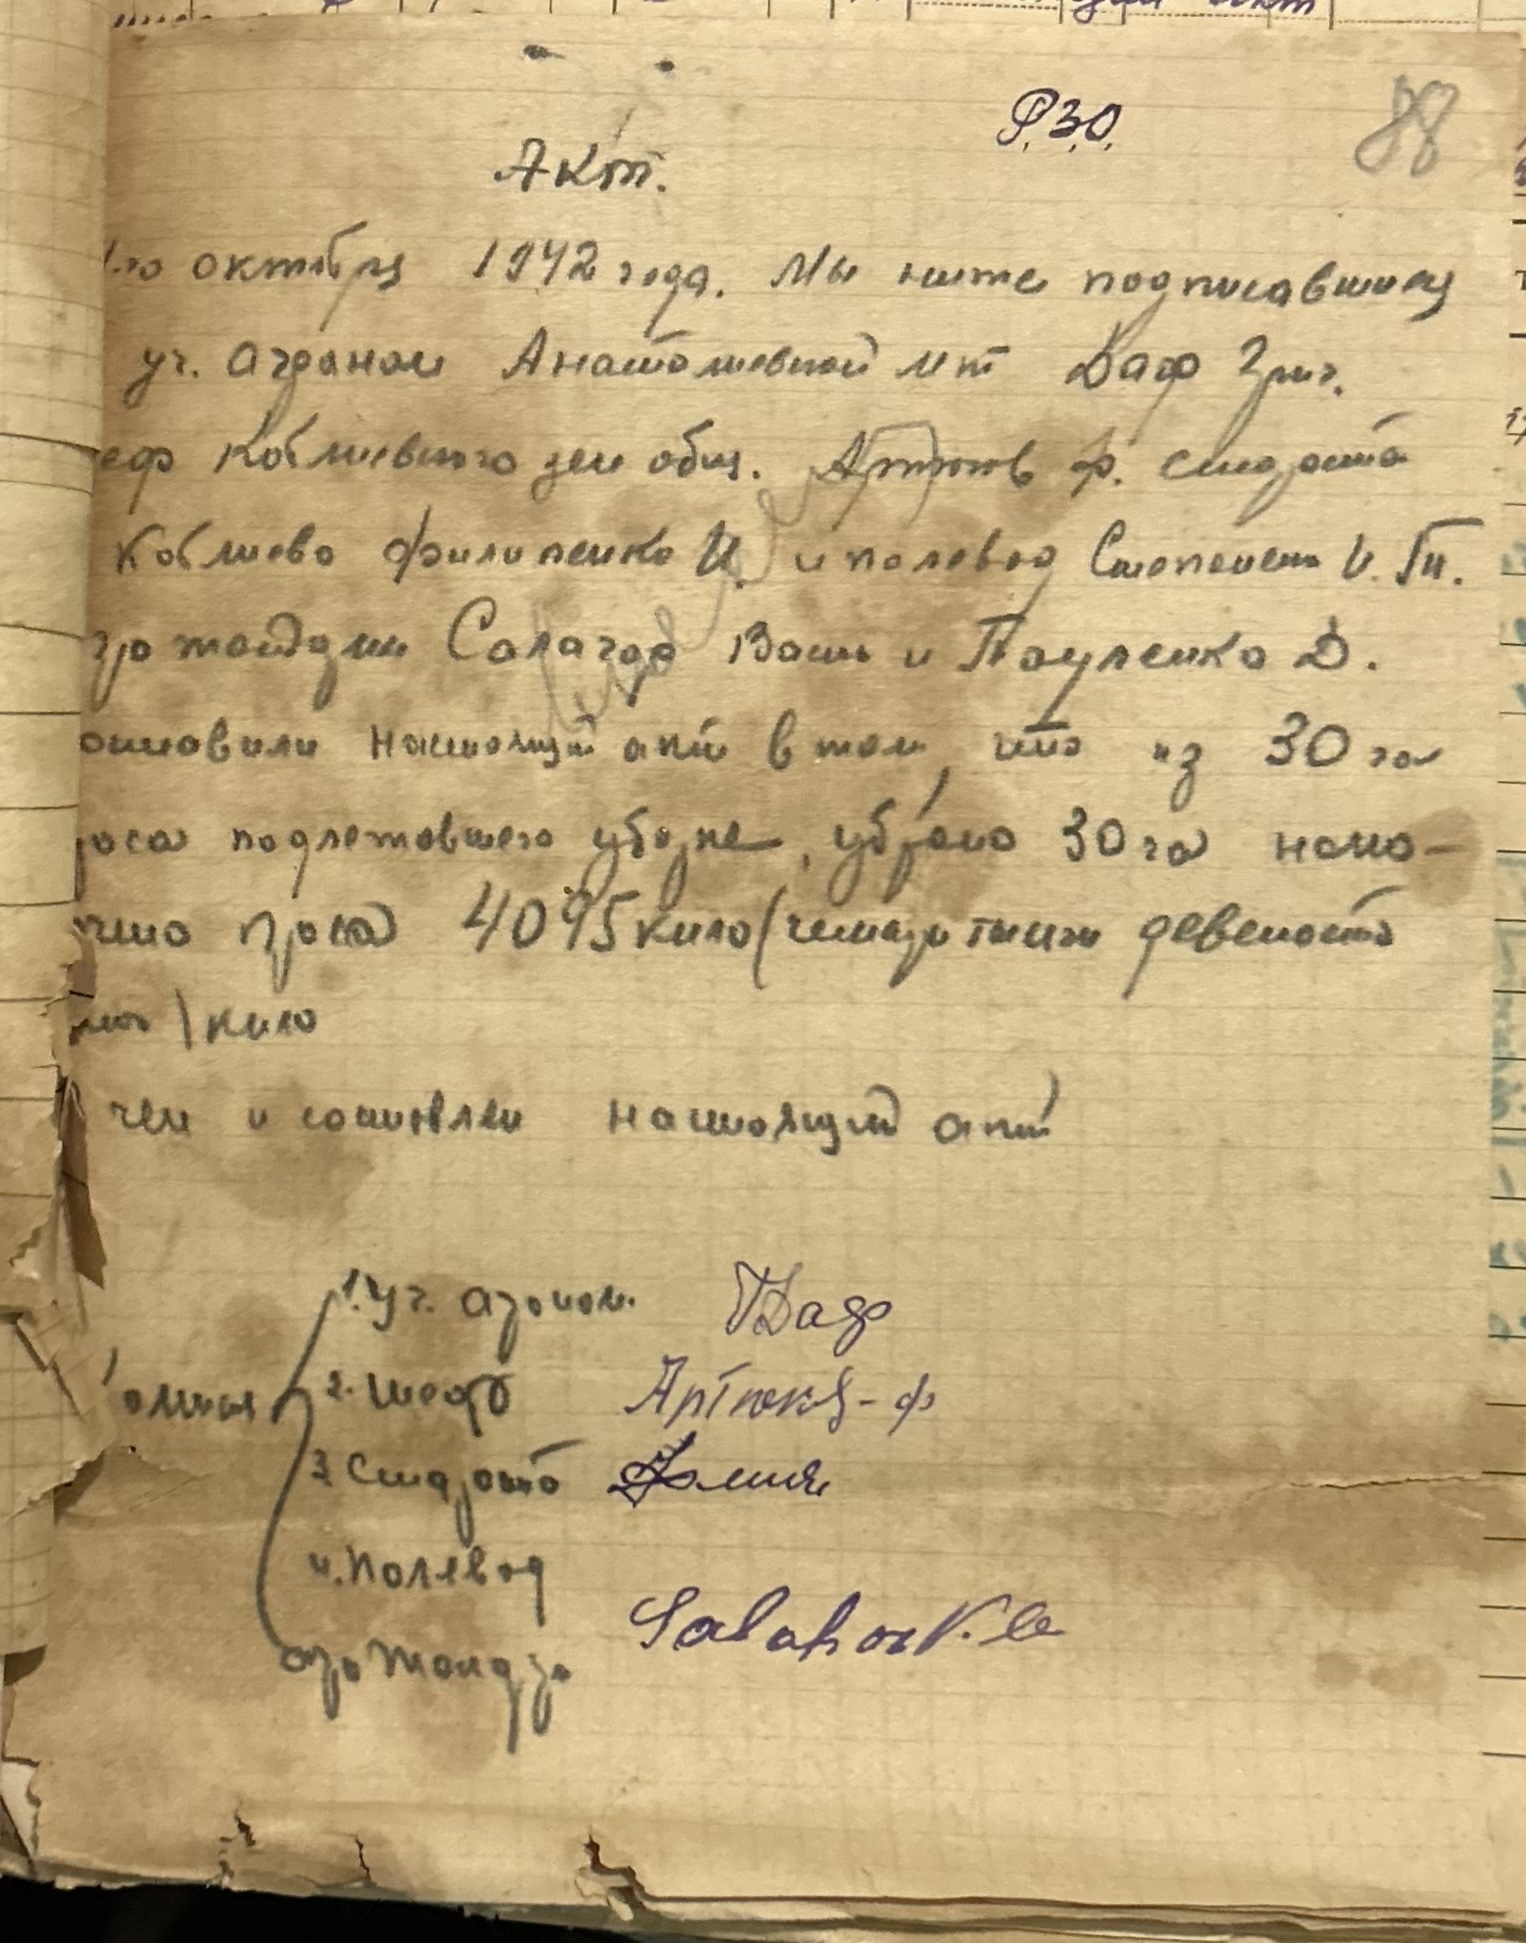 Р.З.О.
88
Акт.
октября 1942 года. Мы ниже подписавшиеся
уч. агроном Анатолиевской Даф Григ.
еф Коблевского зем общ. Артюхов ф. староста
Коблево Филипенко И. и полевод Степенень И. Гн.
Салагор Вась и Пауленко Д.
оставили настоящий акт в том, что из 30 га
роса подлежавшего уборке, убрано 30 га намо-
чено проса 4095 кило (четыри тысячи девеноста
) кило
чем и составлен настоящий акт
1. Уч. агроном. Даф
2. Шеф Артюхов - ф
3. Староста
4. Полевод